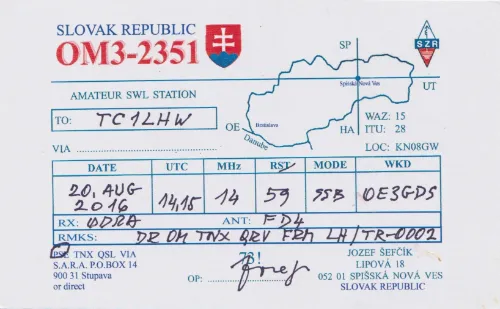 SLOVAK REPUBLIC
OM3-2351
SP
SZR
Spišská Nová Ves
UT
AMATEUR SWL STATION
TO: TC1LHW
OE
Bratislava
Danube
HA
WAZ: 15
ITU: 28
VIA
LOC: KN08GW
DATE UTC MHz RST MODE WKD
20. AUG 2016 14,15 14 59 SSB OE3GDS
RX: ODRA ANT: FD4
RMKS: DR OM TNX QRV FRM LH/TR-0002
PSE TNX QSL VIA 73! JOZEF ŠEFČÍK
S.A.R.A. P.O.BOX 14 LIPOVÁ 18
900 31 Stupava OP: Jozef 052 01 SPIŠSKÁ NOVÁ VES
or direct SLOVAK REPUBLIC